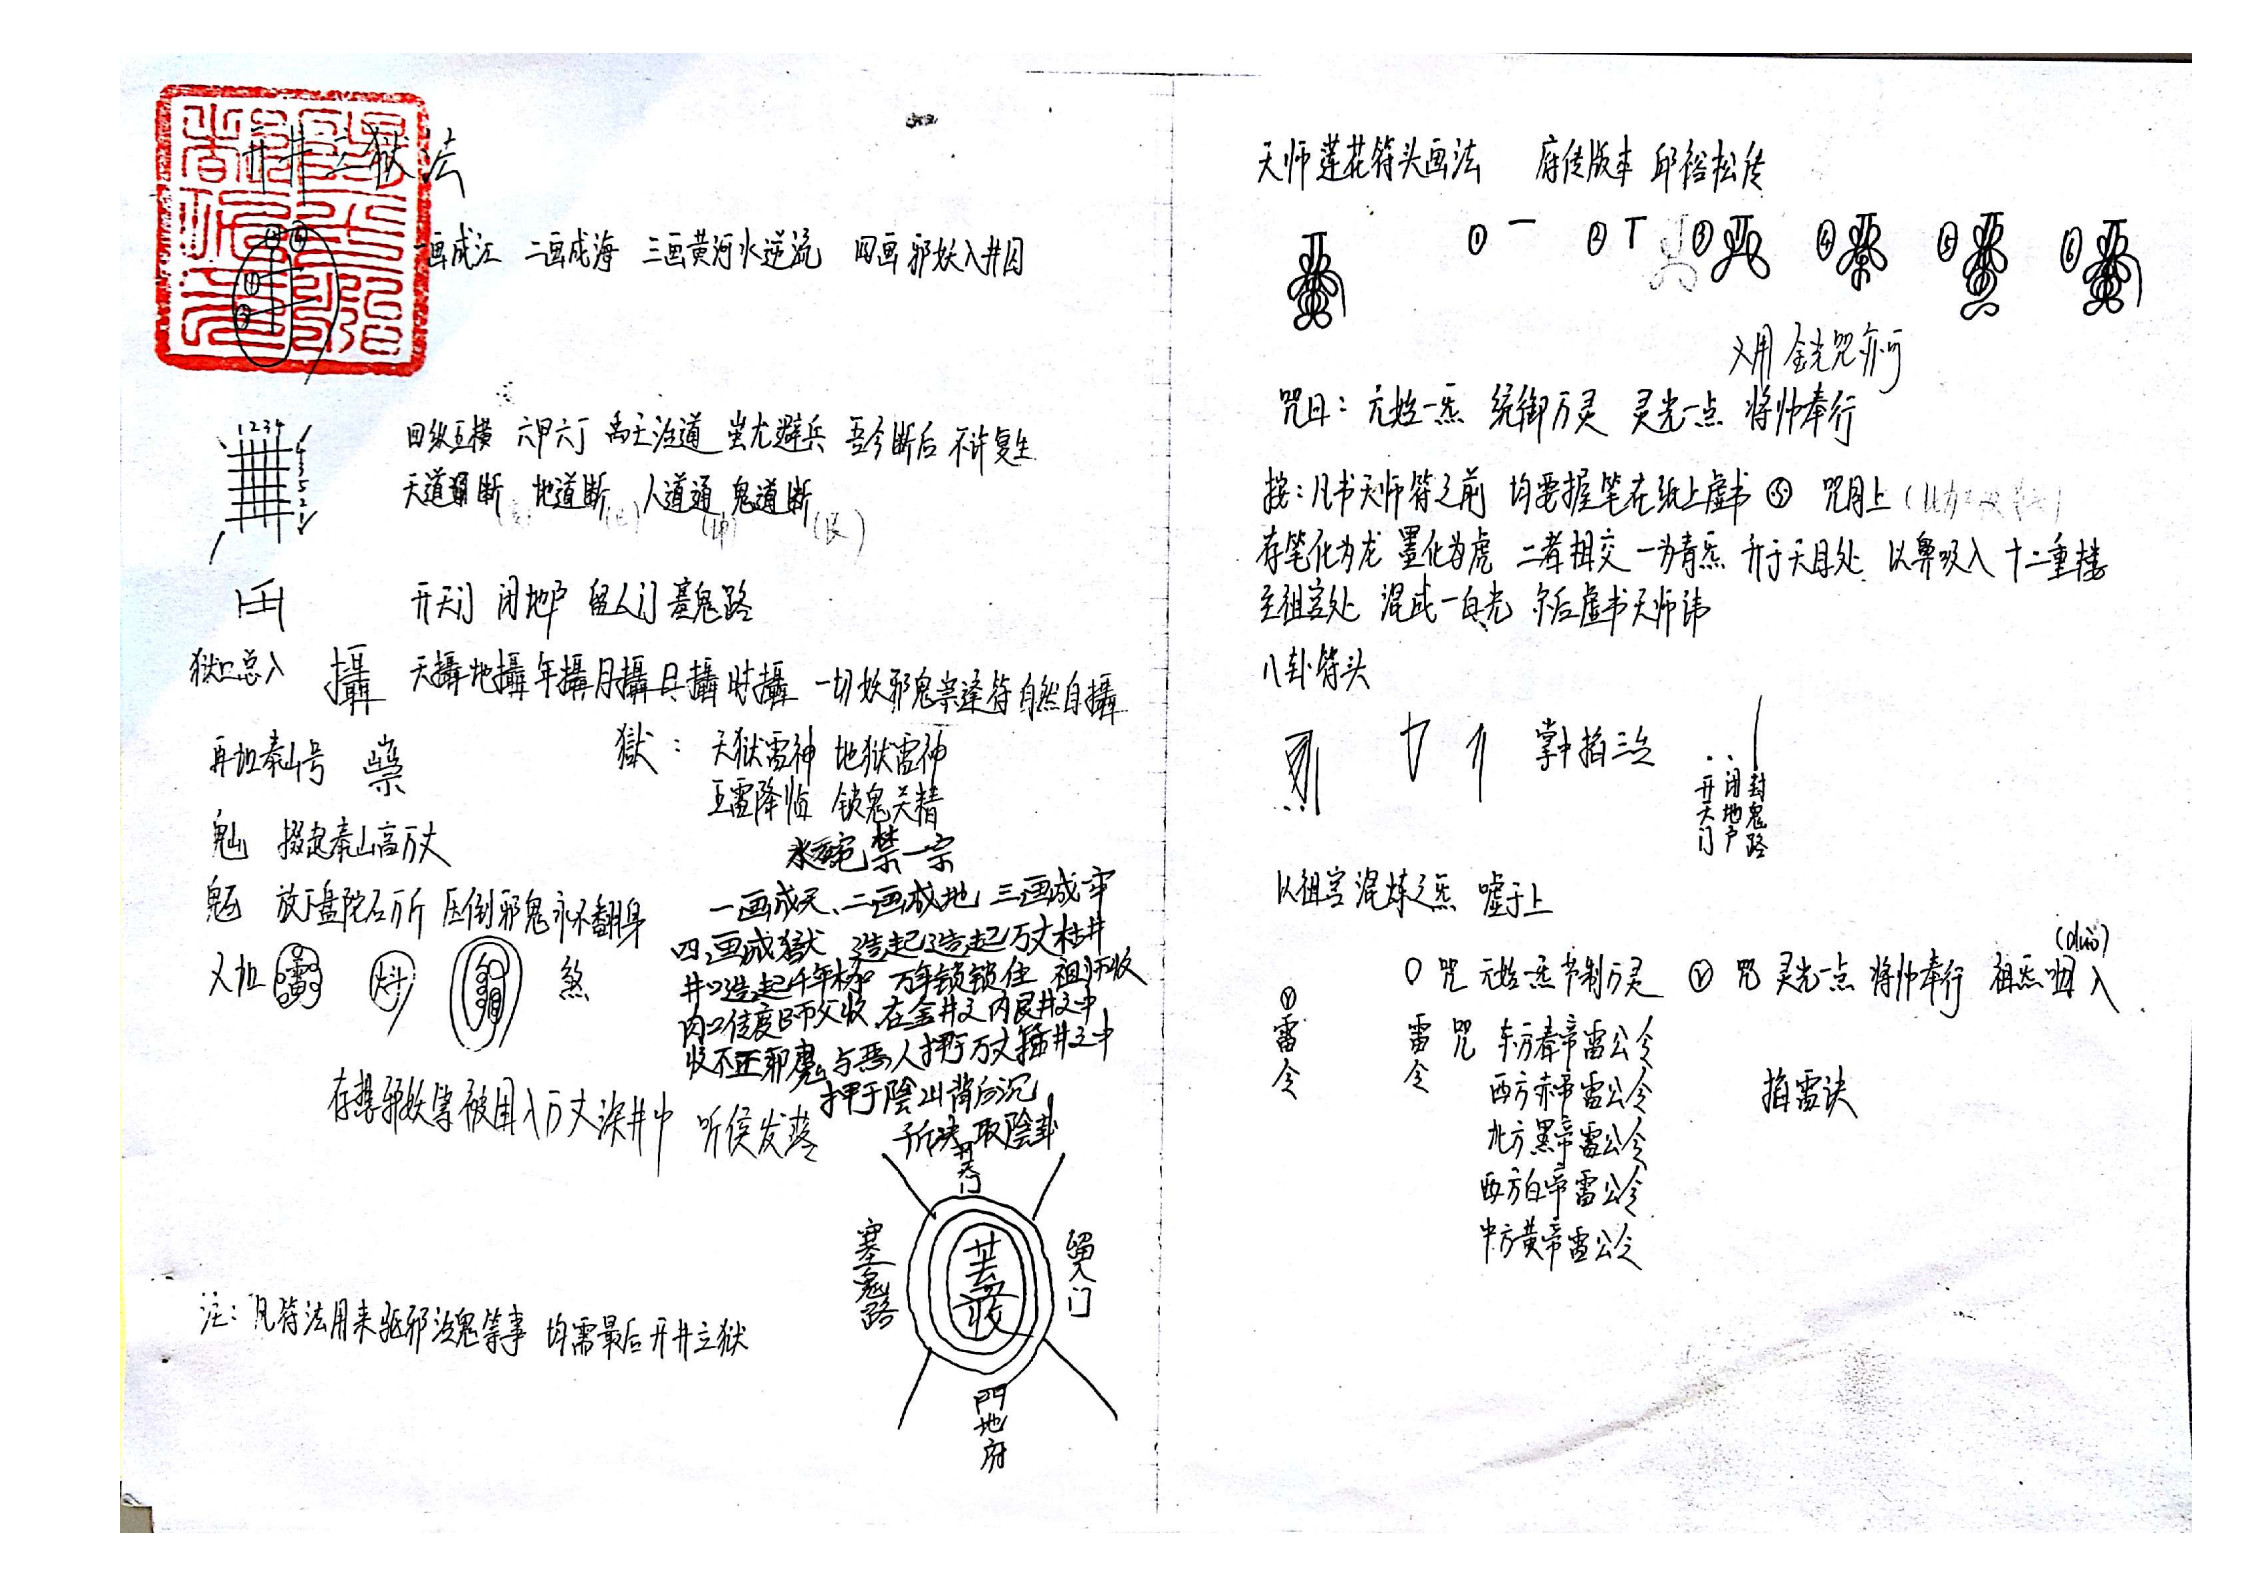 开井立狱法
一画成江 二画成海 三画黄河水逆流 四画邪妖入井囚
1234
四纵五横 六甲六丁 禹王治道 蚩尤避兵 吾今断后 不许复生
天道断 地道断 人道通 鬼道断
开天门 闭地户 留人门 塞鬼路
狱口总入 攝 天攝地攝年攝月攝日攝时攝 一切妖邪鬼祟逢符自然自攝
再加泰山号
獄: 天狱雷神 地狱雷神
五雷降临 锁鬼关精
掇定泰山高万丈
放下盘陀石万斤 压倒邪鬼永不翻身
又加 煞
禁一宗
一画成天、二画成地 三画成牢
四画成獄 造起造起万丈枯井
井口造起千年 万年锁锁住 祖师收
师父收 在金井之内 井之中
收不正邪魔与恶人押于万丈 井之中
押于陰山背后沉
取陰卦
存想邪妖等被困入万丈深井中 听侯发落
开天门
塞鬼路
留人门
收
闭地府
注: 凡符法用来驱邪治鬼等事 均需最后开井立狱
天师莲花符头画法 府传版本 邱裕松传
① ② ③ ④ ⑤ ⑥
又用金光咒亦可
咒曰: 元始一炁 统御万灵 灵光一点 将帅奉行
按: 凡书天师符之前 均要握笔在纸上虚书 咒用上
存笔化为龙 墨化为虎 二者相交 一为青炁 升于天目处 以鼻吸入 十二重楼
至祖宫处 混成一白光 尔后虚书天师讳
八卦符头
掌中掐三
开天门
闭地户
封鬼路
以祖宫混炼之炁 嘘于上
咒 元始一炁 书制万灵 咒 灵光一点 将帅奉行 祖炁 入
雷令
雷令 咒 东方青帝雷公令
西方赤帝雷公令 掐雷诀
北方黑帝雷公令
西方白帝雷公令
中方黄帝雷公令